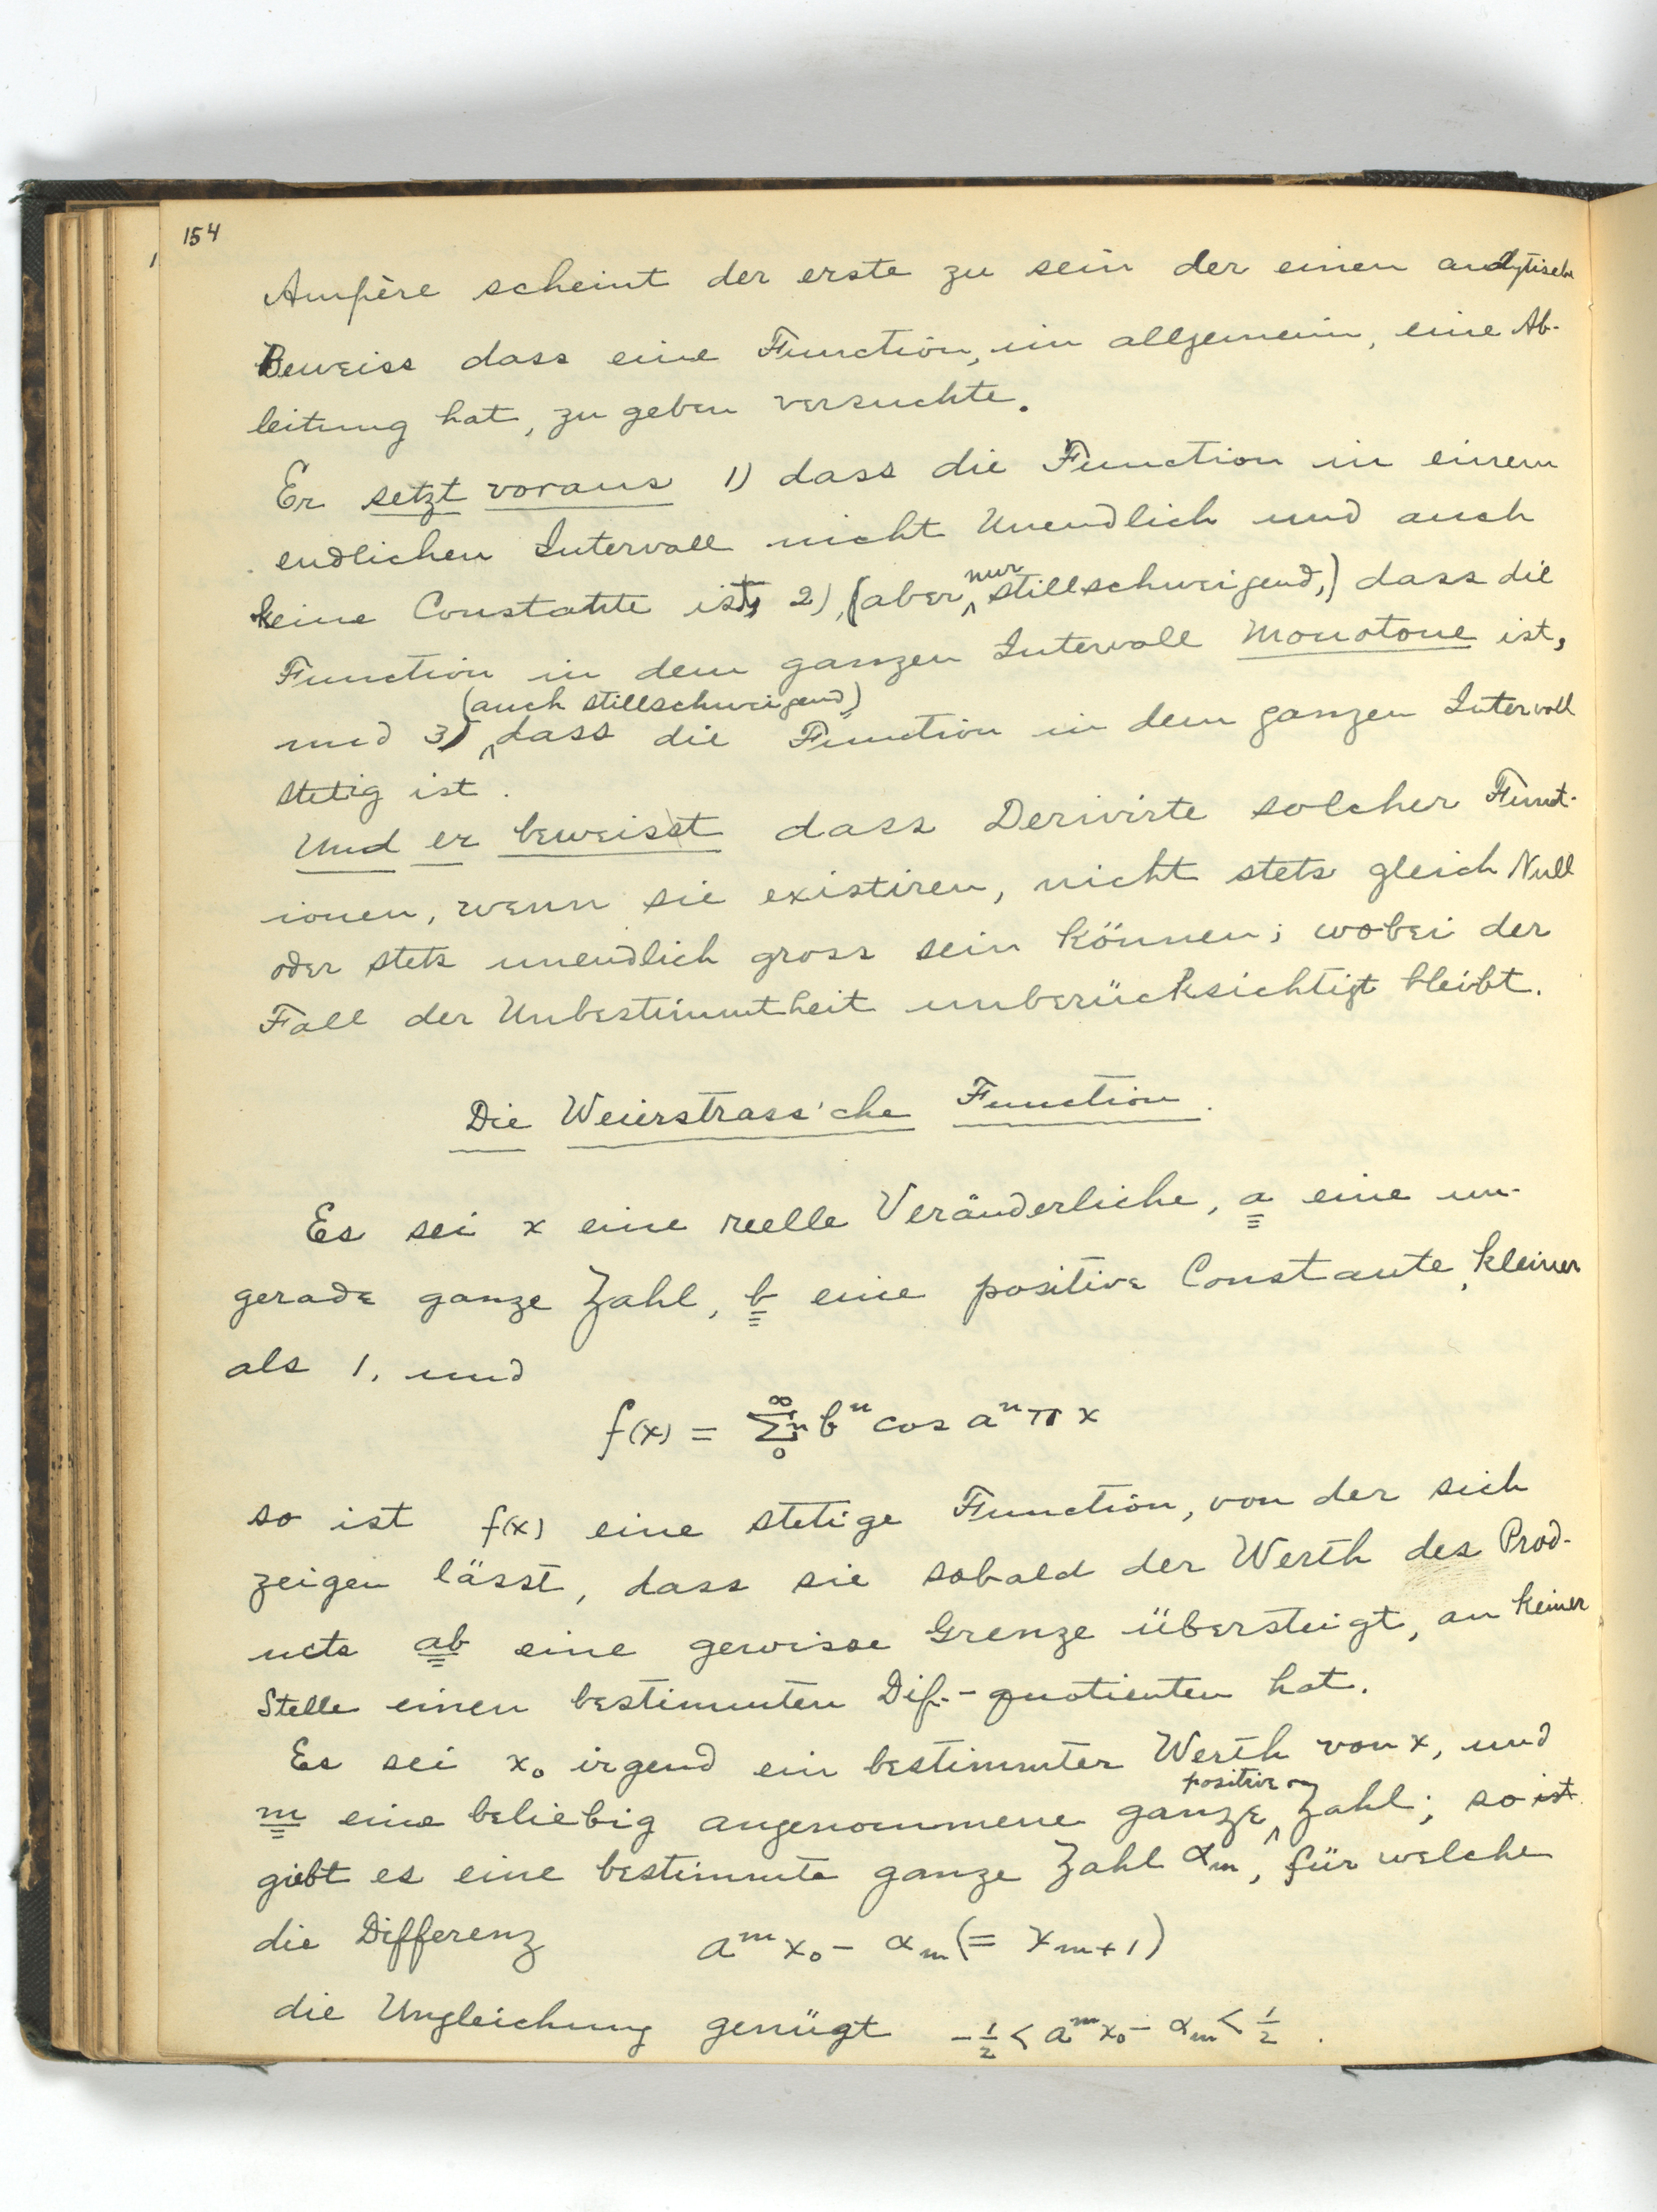 154
Ampère scheint der erste zu sein der einen analytische
Beweiss dass eine Function, im allgemein, eine Ab-
leitung hat, zu geben versuchte.
Er setzt voraus 1) dass die Function in einem
endlichen Intervall nicht Unendlich und auch
keine Constante ist, 2), (aber nur stillschweigend,) dass die
Function in dem ganzen Intervall Monotone ist,
und 3) (auch stillschweigend) dass die Function in dem ganzen Intervall
stetig ist.
Und er beweisst dass Derivirte solcher Funct-
ionen, wenn sie existiren, nicht stets gleich Null
oder stets unendlich gross sein können; wobei der
Fall der Unbestimmtheit unberücksichtigt bleibt.
Die Weierstrass'che Function.
Es sei x eine reelle Veränderliche, a eine un-
gerade ganze Zahl, b eine positive Constante, kleiner
als 1, und
f(x) = ∑₀^∞ₙ bⁿ cos aⁿ π x
so ist f(x) eine stetige Function, von der sich
zeigen lässt, dass sie sobald der Werth des Prod-
ucts ab eine gewisse Grenze übersteigt, an keiner
Stelle einen bestimmten Dif.-quotienten hat.
Es sei x₀ irgend ein bestimmter Werth von x, und
m eine beliebig angenommene ganze positive Zahl; so ist
giebt es eine bestimmte ganze Zahl αₘ, für welche
die Differenz aᵐx₀ – αₘ (= xₘ₊₁)
die Ungleichung genügt –½ < aᵐx₀ – αₘ < ½.